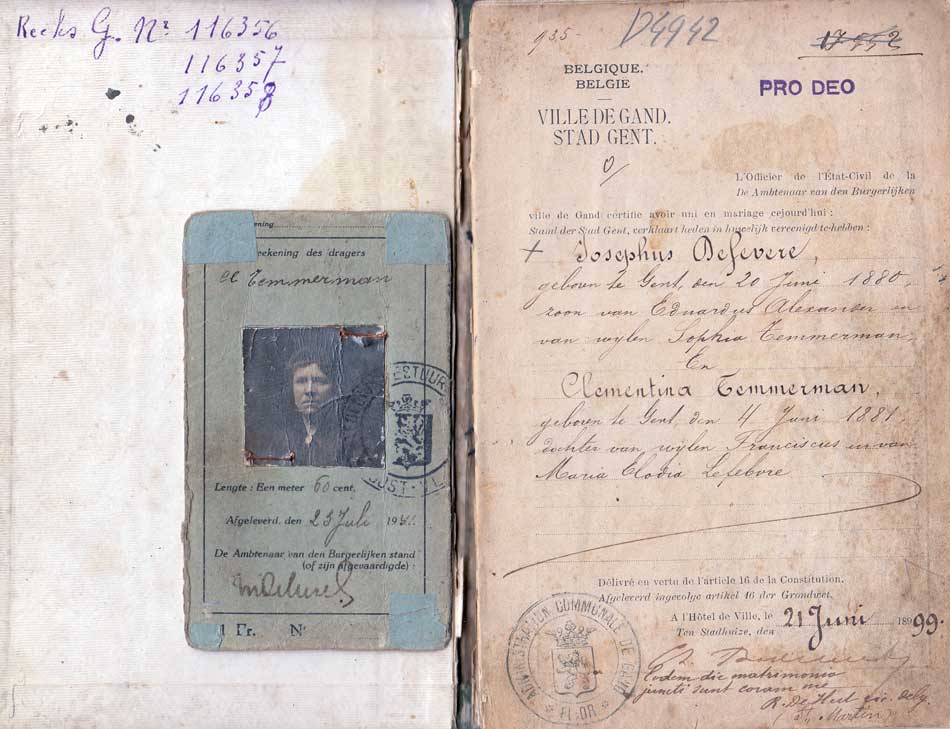 Reeks G. Nr 116356
116357
116358
ening
ekening des dragers
Cl Temmerman
Lengte : Een meter 60 cent.
Afgeleverd, den 23 Juli 194
De Ambtenaar van den Burgerlijken stand
(of zijn afgevaardigde) :
1 Fr. N
935- D4942 17442
BELGIQUE.
BELGIE
PRO DEO
VILLE DE GAND.
STAD GENT.
L'Officier de l'État-Civil de la
De Ambtenaar van den Burgerlijken
ville de Gand certifie avoir uni en mariage cejourd'hui :
Stand der Stad Gent, verklaart heden in huwelijk vereenigd te hebben :
+ Josephus Defevere,
geboren te Gent, den 20 Juni 1880,
zoon van Eduardus Alexander en
van wylen Sophia Temmerman,
En
Clementina Temmerman,
geboren te Gent, den 4 Juni 1881
dochter van wylen Franciscus en van
Maria Clodia Lefebvre
Délivré en vertu de l'article 16 de la Constitution.
Afgeleverd ingevolge artikel 16 der Grondwet.
A l'Hôtel de Ville, le
Ten Stadhuize, den 21 Juni 1899.
ADMINISTRATION COMMUNALE DE GAND
Eodem die matrimonio
juncti sunt coram me